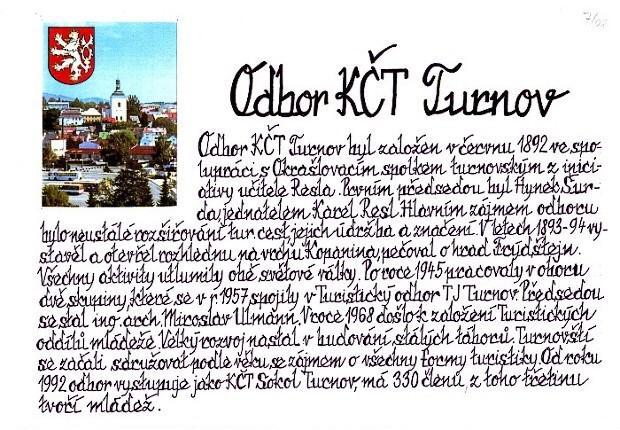 7/02
Odbor KČT Turnov
Odbor KČT Turnov byl založen v červnu 1892 ve spo-
lupráci s Okrašlovacím spolkem turnovským z inici-
ativy učitele Resla. Prvním předsedou byl Hynek Šur-
da, jednatelem Karel Resl. Hlavním zájmem odboru
bylo neustálé rozšiřování tur. cest, jejich údržba a značení. V letech 1893-94 vy-
stavěl a otevřel rozhlednu na vrchu Kopanina, pečoval o hrad Frýdštejn.
Všechny aktivity utlumily obě světové války. Po roce 1945 pracovaly v oboru
dvě skupiny, které se v r. 1957 spojily v Turistický odbor TJ Turnov. Předsedou
se stal ing. arch. Miroslav Ulmann. V roce 1968 došlo k založení Turistických
oddílů mládeže. Velký rozvoj nastal v budování stálých táborů. Turnovští
se začali sdružovat podle věku, se zájmem o všechny formy turistiky. Od roku
1992 odbor vystupuje jako KČT Sokol Turnov, má 330 členů z toho třetinu
tvoří mládež.